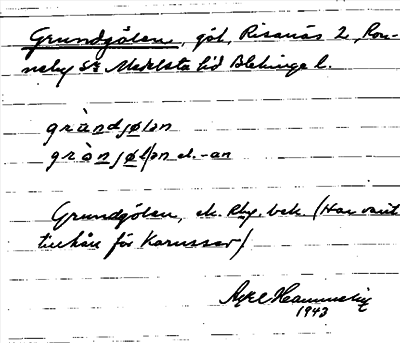 Grundgölen, göl, Risanäs 2, Ron-
neby sn Medelsta hd Blekinge l.
gràndjølan
grànjøl/ən el. -an
Grundgölen, ek. Rbg. bek. (Har varit
tillhåll för Karussar)
Axel Hammelig
1943